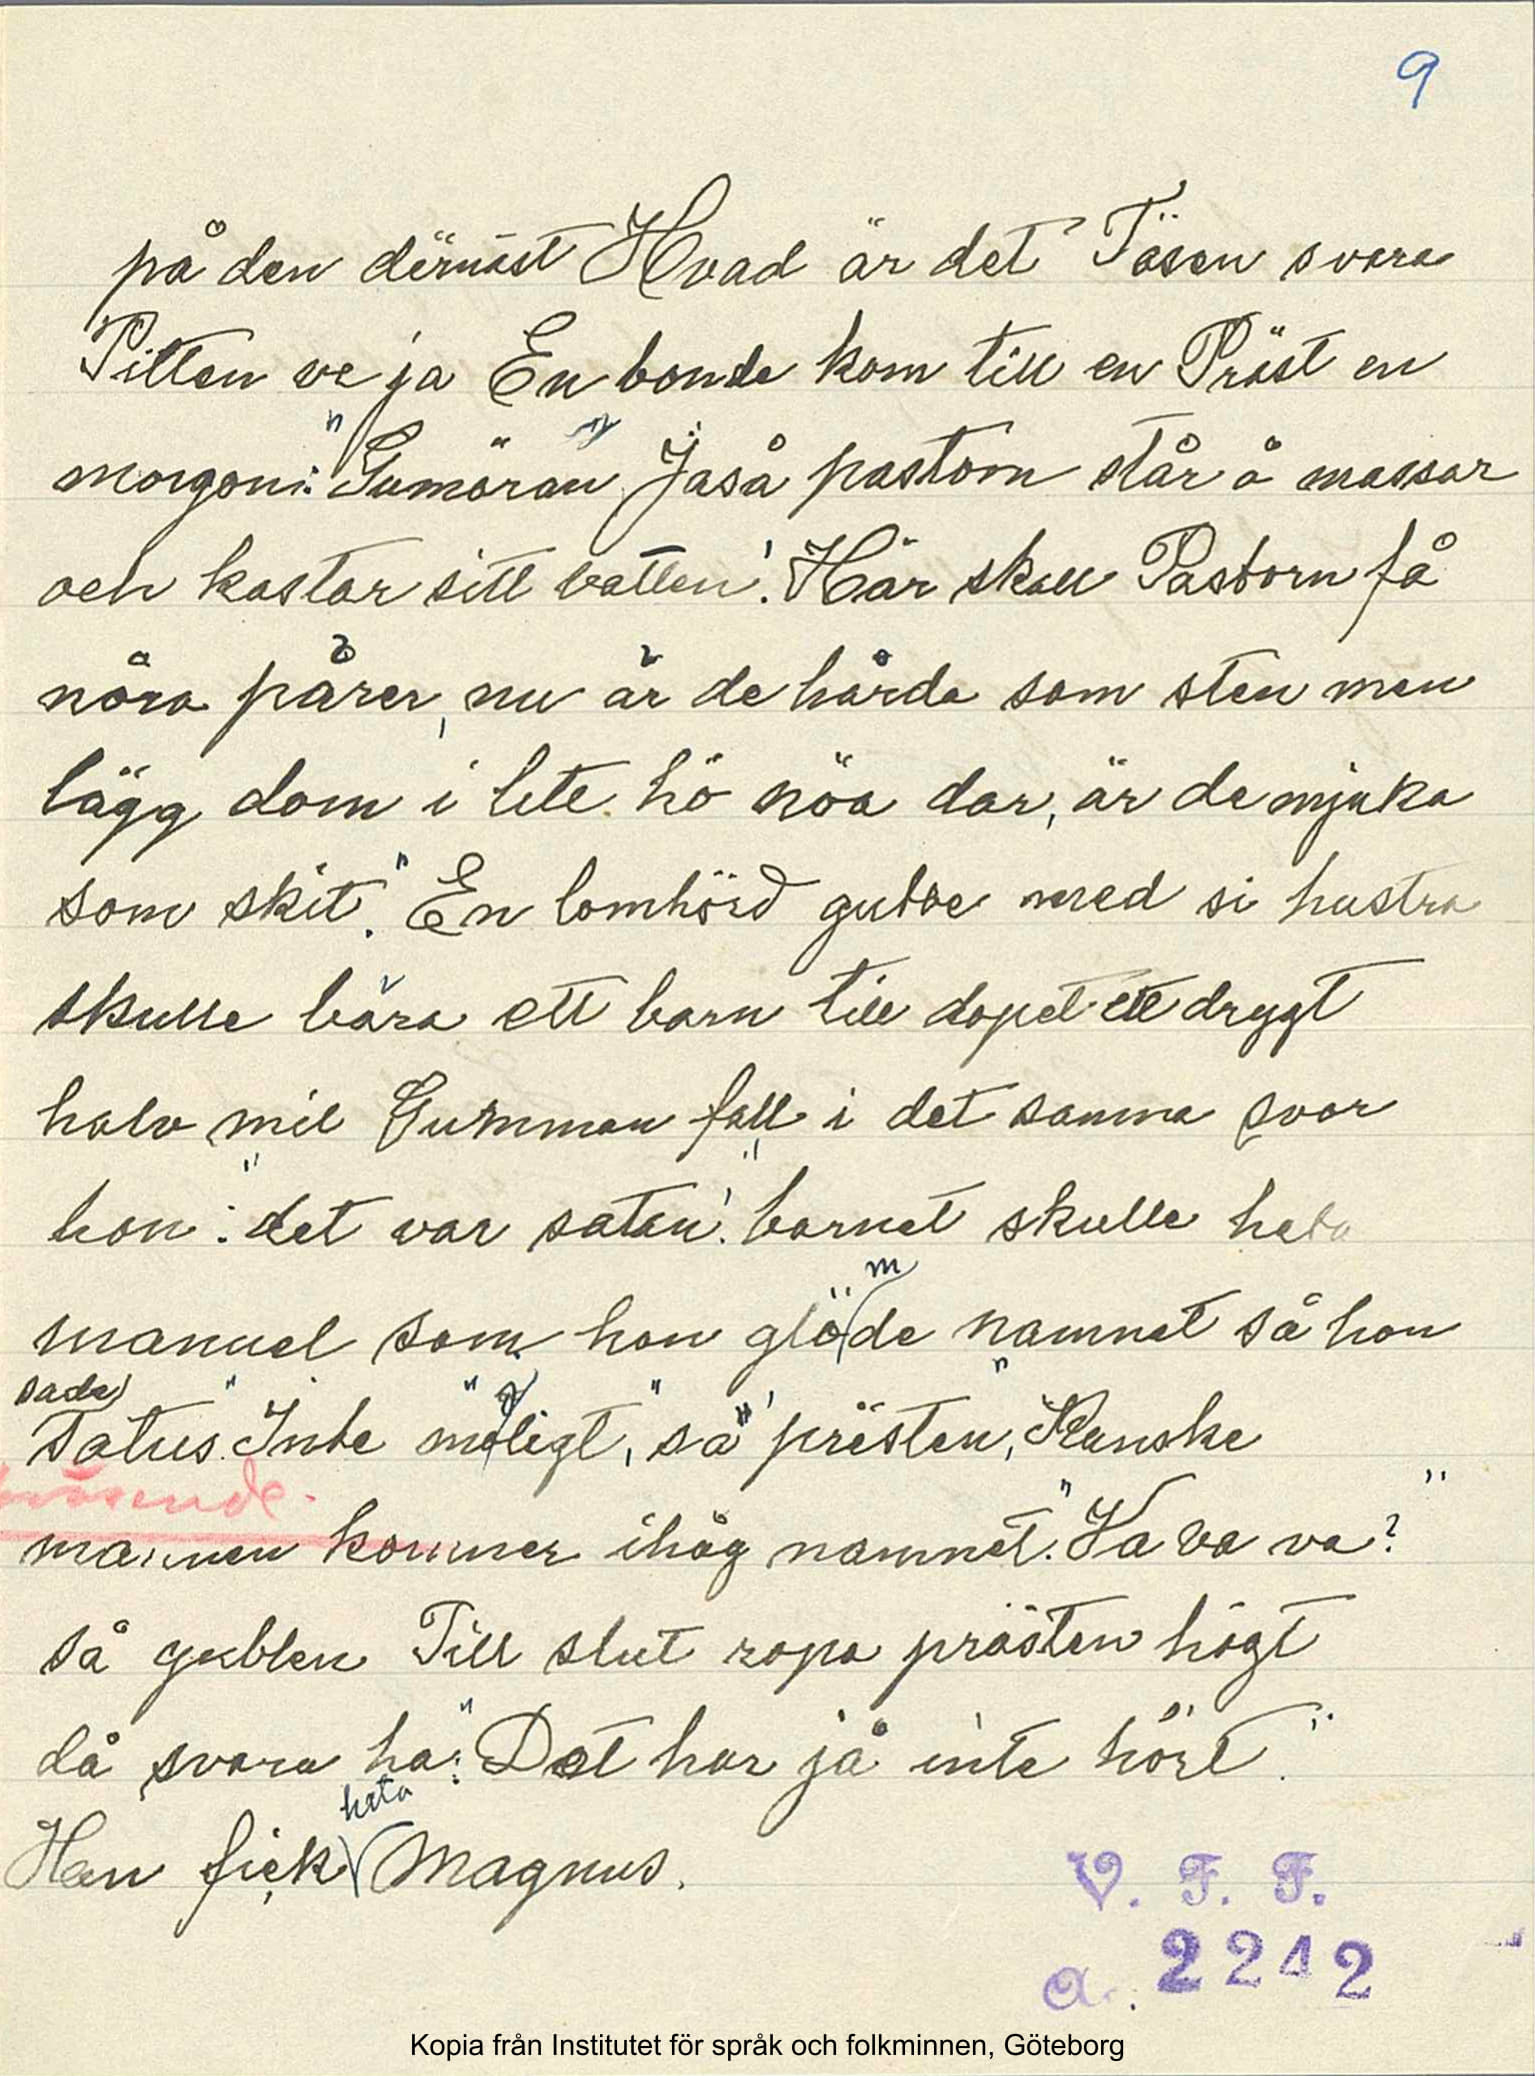 9
på den därnäst Hvad är det Tösen svara
Pitten ve ja En bonde kom till en Präst en
morgon: "Gumöran" Jaså pastorn står å massar
och kastar sitt vatten! Här skall Pastorn få
nöra pärer, nu är de hårda som sten men
lägg dom i lite hö nöa dar, är de mjuka
som skit." En lomhörd gubbe med si hustra
skulle bära ett barn till dopet ett drygt
halv mil Gumman fall i det samma svor
hon: "det var satan!" barnet skulle heta
m
manuel som hon glöde namnet så hon
sade
"Satus" Inte "möligt", sa' prästen, "Kanske
mannen kommer ihåg namnet." "Va va va?"
så gubben Till slut ropa prästen högt
då svara ha: "Det har jå inte hört".
heta
Han fick Magnus.
V. F. F.
a. 2242
Kopia från Institutet för språk och folkminnen, Göteborg